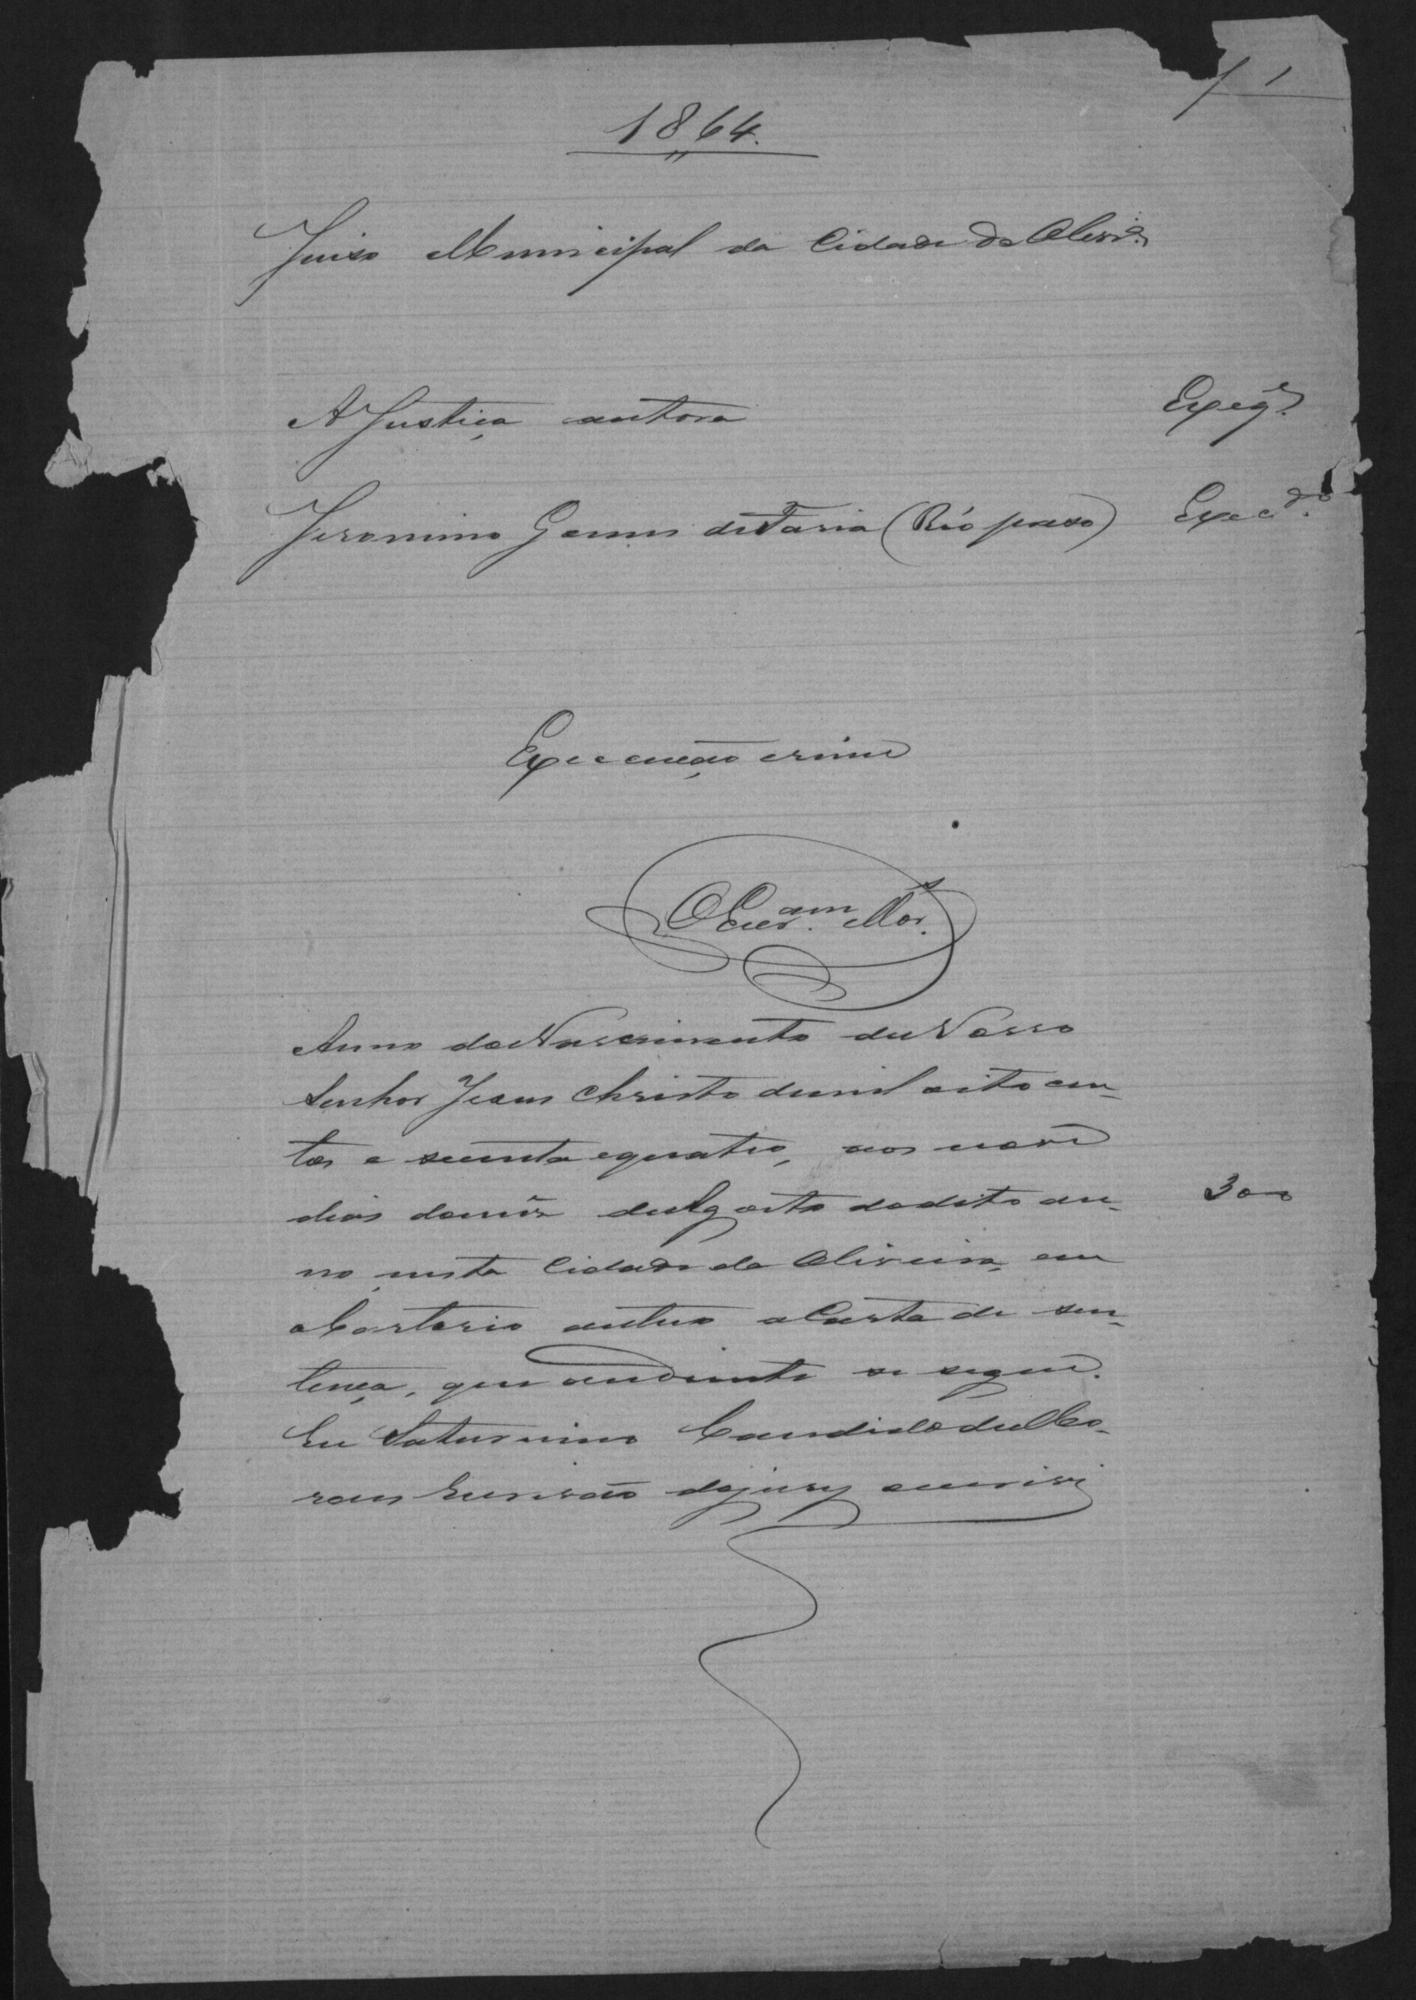 1
1864.
Juizo Municipal da Cidade da Olivrª
A Justiça autora Exeqe.
Jeronimo Gomes de Faria (Réo prezo) Execdo.
Execução crime
O Escram Mors.
Anno do Nascimento de Nosso
Senhor Jesus Christo de mil oito cen-
tos e secenta e quatro, aos nove
dias do mez de Agosto do dito an-
no, nesta Cidade da Oliveira, em
o Cartorio autuo a Carta de sen-
tença, que ao diante se segue.
Eu Saturnino Candido de Mo-
raes Escrivão do jury escrivi
300